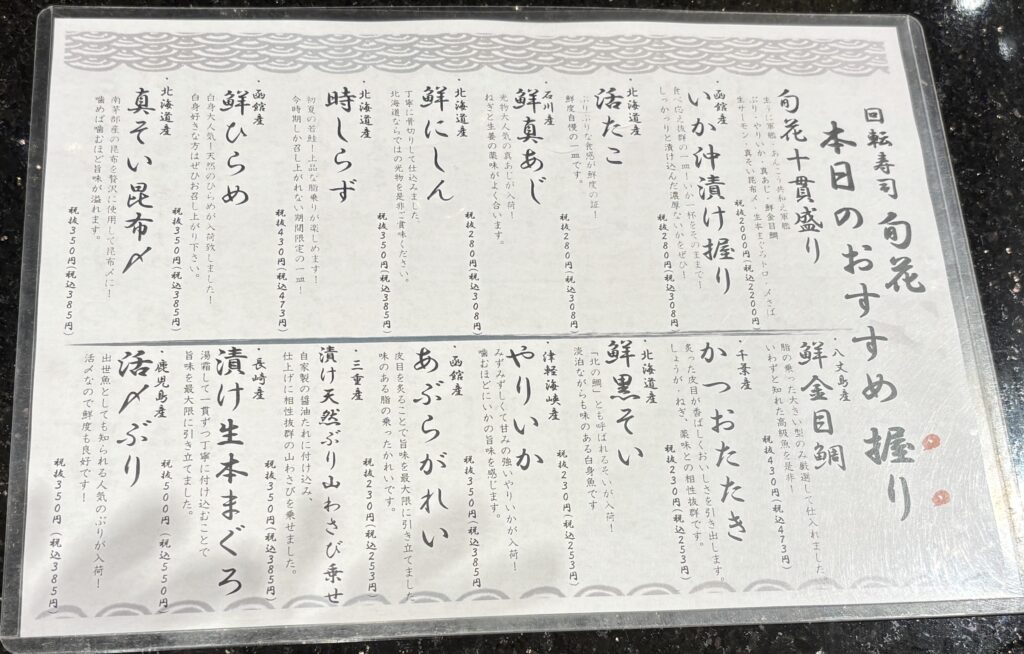 回転寿司 旬花
本日のおすすめ握り
旬花十貫盛り
生うに軍艦・あんこう共和え軍艦
ぶり・やりいか・真あじ・鮮金目鯛
生サーモン・真そい昆布〆・生本まぐろトロ・〆さば
税抜2000円(税込2200円)
・函館産
いか沖漬け握り
食べ応え抜群の一皿!いか一杯をそのままで!
しっかりと漬け込んだ濃厚ないかをぜひ!
税抜280円(税込308円)
・北海道産
活たこ
ぷりぷりな食感が鮮度の証!
鮮度自慢の一皿です。
税抜280円(税込308円)
・石川産
鮮真あじ
光物大人気の真あじが入荷!
ねぎと生姜の薬味がよく合います。
税抜280円(税込308円)
・北海道産
鮮にしん
丁寧に骨切りして仕込みました。
北海道ならではの光物を是非ご賞味ください。
税抜350円(税込385円)
・北海道産
時しらず
初夏の若鮭!上品な脂乗りが楽しめます!
今時期しか召し上がれない期間限定の一皿!
税抜430円(税込473円)
・函館産
鮮ひらめ
白身大人気!天然のひらめが入荷致しました!
白身好きな方はぜひお召し上がり下さい。
税抜350円(税込385円)
・北海道産
真そい昆布〆
南茅部産の昆布を贅沢に使用して昆布〆に!
噛めば噛むほど旨味が溢れます。
税抜350円(税込385円)
・八丈島産
鮮金目鯛
脂の乗った大きい型のみ厳選して仕入れました
いわずと知れた高級魚を是非!
税抜430円(税込473円)
・千葉産
かつおたたき
炙った皮目が香ばしくおいしさを引き出します。
しょうが・ねぎ、薬味との相性抜群です。
税抜230円(税込253円)
・北海道産
鮮黒そい
「北の鯛」とも呼ばれるそいが入荷!
淡泊ながらも味のある白身魚です
税抜230円(税込253円)
・津軽海峡産
やりいか
みずみずしくて甘みの強いやりいかが入荷!
噛むほどにいかの旨味を感じます。
税抜350円(税込385円)
・函館産
あぶらがれい
皮目を炙ることで旨味を最大限に引き立てました
味のある脂の乗ったかれいです。
税抜230円(税込253円)
・三重産
漬け天然ぶり山わさび乗せ
自家製の醤油たれに付け込み、
仕上げに相性抜群の山わさびを乗せました。
税抜350円(税込385円)
・長崎産
漬け生本まぐろ
湯霜して一貫ずつ丁寧に付け込むことで
旨味を最大限に引き立てました。
税抜500円(税込550円)
・鹿児島産
活〆ぶり
出世魚としても知られる人気のぶりが入荷!
活〆なので鮮度も良好です!
税抜350円(税込385円)